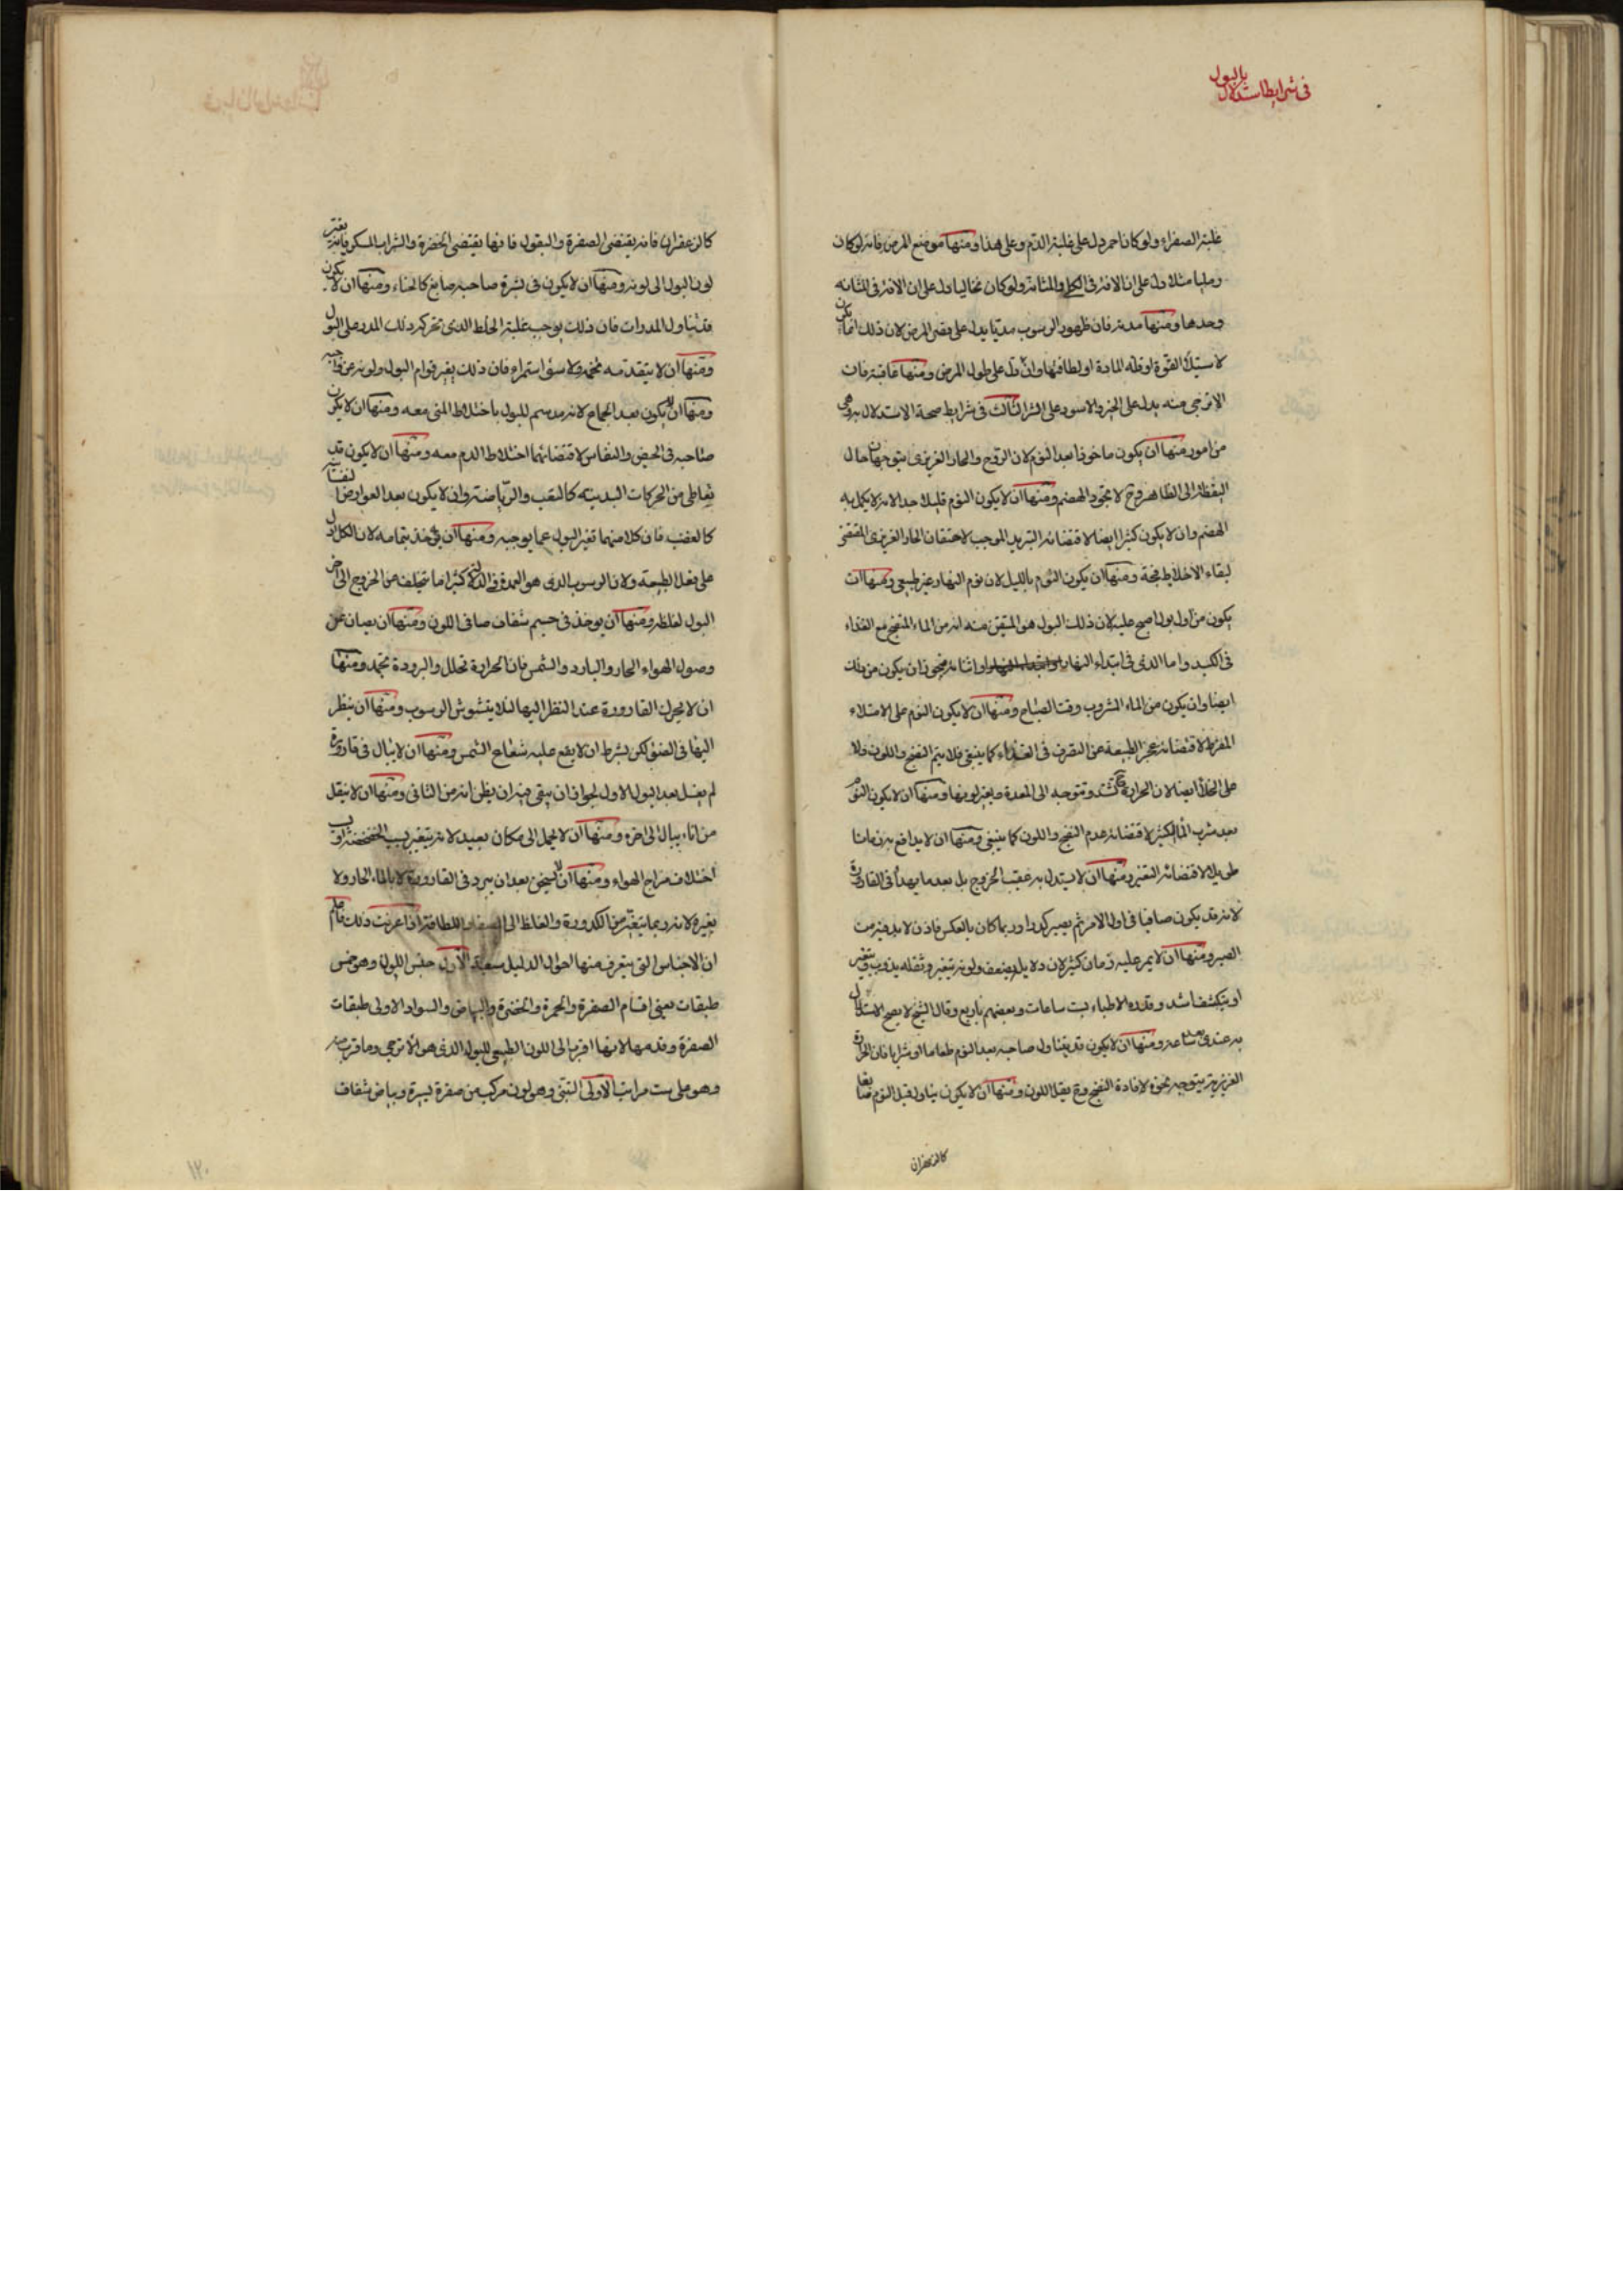 فی شرایط استدلال بالبول
غلبة الصفراء ولو کان احمر دل علی غلبة الدم وعلی هذا ومنها موضع المرض فانه لو کان
رملیا مثلا دل علی ان الافة فی الکلی والمثانة ولو کان نخالیا دل علی ان الافة فی المثانه
وحدها ومنها مدته فان ظهور الرسوب مدتا یدل علی قصر المرض لان ذلک انما یکون
لاستیلاء القوة او قلة المادة او لطافتها وان دل علی طول المرض ومنها عاقبته فان
الاترجی منه یدل علی الخیر والاسود علی الشر الثالث فی شرایط صحة الاستدلال به وهی
من امور منها ان یکون ماخوذا بعد النوم لان الروح والحار الغریزی یتوجهان حال
الیقظة الی الظاهر وح لا یجود الهضم ومنها ان لا یکون النوم قلیلا جدا لانه لا یکمل به
الهضم وان لا یکون کثیرا ایضا لاقتضائه التبرید الموجب لاحتقان الحار الغریزی المقتضی
لبقاء الاخلاط فجة ومنها ان یکون النوم باللیل لان نوم النهار غیر طبیعی ومنها ان
یکون من اول بول اصبح علیه لان ذلک البول هو المتیقن منه انه من الماء المنضج مع الغذاء
فی الکبد واما الذی فی ابتداء النهار او اثنائه فیجوز ان یکون من ذلک
ایضا وان یکون من الماء المشروب وقت الصباح ومنها ان لا یکون النوم علی الامتلاء
المفرط لاقتضائه عجز الطبیعة عن التصرف فی الغذاء کما ینبغی فلا یتم النضج واللون ولا
علی الخلاء ایضا لان الحرارة تشتد وتتوجه الی المعدة فیغیر لونها ومنها ان لا یکون النوم
بعد شرب الماء الکثیر لاقتضائه عدم النضج واللون کما ینبغی ومنها ان لا یدافع به زمانا
طویلا لاقتضائه التغیر ومنها ان لا یستدل به عقیب الخروج بل بعد ما یهدأ فی القارورة
لانه قد یکون صافیا فی اول الامر ثم یصیر کدرا وربما کان بالعکس فاذن لا بد فیه من
الصبر ومنها ان لا یمر علیه زمان کثیر لان دلایله یضعف ولونه یتغیر وثقله یذوب ویتغیر
او یتکثف اشد وقدره الاطباء بست ساعات وبعضهم باربع وقال الشیخ لا یصح الاستدلال
به عندی بعد ساعة ومنها ان لا یکون قد یتناول صاحبه بعد النوم طعاما او شرابا فان الحرارة
الغریزیة یتوجه نحوه لافادة النضج وح یقل اللون ومنها ان لا یکون یتناول قبل النوم صابغا
کالزعفران
کالزعفران فانه یقتضی الصفرة والبقول فانها یقتضی الخضرة والشراب المسکر فانه یغیر
لون البول الی لونه ومنها ان لا یکون فی بشرة صاحبه صابغ کالحناء ومنها ان لا یکون
قد یتناول المدرات فان ذلک یوجب غلبة الخلط الذی تحرکه ذلک المدر علی البول
ومنها ان لا یتقدمه تخمة ولا سوء استمراء فان ذلک یغیر قوام البول ولونه عن واجبه
ومنها ان لا یکون بعد الجماع لانه مدسم للبول باختلاط المنی معه ومنها ان لا یکون
صاحبه فی الحیض والنفاس لاقتضائهما اختلاط الدم معه ومنها ان لا یکون قد
یعاطی من الحرکات البدنیة کالتعب والریاضة وان لا یکون بعد العوارض النفسانیة
کالغضب فان کلا منهما تغیر البول عما یوجبه ومنها ان یؤخذ بتمامه لان الکل ادل
علی فعل الطبیعة ولان الرسوب الذی هو العمدة فی الدلالة کثیرا ما یتخلف عن الخروج الی اخر
البول لغلظه ومنها ان یوخذ فی جسم شفاف صافی اللون ومنها ان یصان عن
وصول الهواء الحار والبارد والشمس فان الحرارة تحلل والبرودة تجمد ومنها
ان لا یحرک القارورة عند النظر الیها لئلا یتشوش الرسوب ومنها ان ینظر
الیها فی الضوء لکن بشرط ان لا یقع علیه شعاع الشمس ومنها ان لا یبال فی قارورة
لم یغسل بعد البول الاول لجواز ان یبقی فیه ان یظن انه من الثانی ومنها ان لا ینقل
من اناء یبال الی اخره ومنها ان لا یحمل الی مکان بعید لانه یتغیر بسبب الخضخضة او
اختلاف مزاج الهواء ومنها ان لا یسخن بعد ان یبرد فی القارورة لا بالماء الحار ولا
بغیره لانه ربما یتغیر من الکدورة والغلظ الی الصفاء واللطافة اذا عرفت ذلک فاعلم
ان الاجناس التی یتعرف منها احوال الدلیل سبعة الاول جنس اللون وهو خمس
طبقات یعنی اقسام الصفرة والحمرة والخضرة والبیاض والسواد الاولی طبقات
الصفرة وقدمها لانها اقرب الی اللون الطبیعی للبول الذی هو الاترجی وما قرب منه
وهو علی ست مراتب الاولی التبنی وهو لون مرکب من صفرة یسیرة وبیاض شفاف